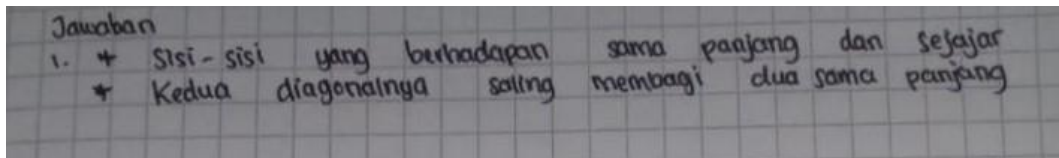 Jawaban
1. * Sisi-sisi yang berhadapan sama panjang dan sejajar
* Kedua diagonalnya saling membagi dua sama panjang